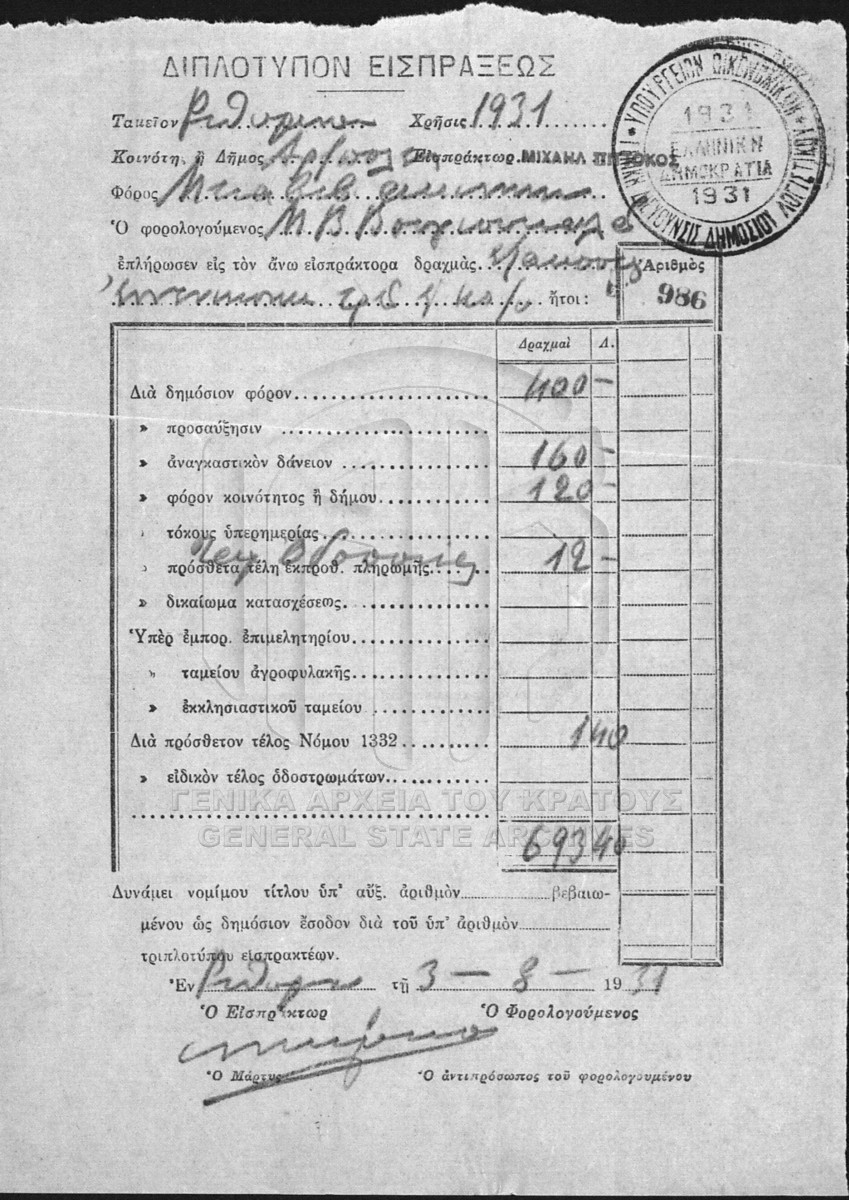 ΔΙΠΛΟΤΥΠΟΝ ΕΙΣΠΡΑΞΕΩΣ
Ταμεῖον Χρῆσις 1931
Κοινότη. ἢ Δῆμος Εἰσπράκτωρ ΜΙΧΑΗΛ
Φόρος
Ὁ φορολογούμενος Μ. Β.
ἐπλήρωσεν εἰς τὸν ἄνω εἰσπράκτορα δραχμὰς
ἤτοι:
Ἀριθμὸς
986
ΥΠΟΥΡΓΕΙΟΝ ΟΙΚΟΝΟΜΙΚΩΝ
1931
ΕΛΛΗΝΙΚΗ
ΔΗΜΟΚΡΑΤΙΑ
1931
Δραχμαὶ Λ.
Διὰ δημόσιον φόρον 400 -
» προσαύξησιν
» ἀναγκαστικὸν δάνειον 160 -
» φόρον κοινότητος ἢ δήμου 120 -
» τόκους ὑπερημερίας
» πρόσθετα τέλη ἐκπροθ. πληρωμῆς 12 -
» δικαίωμα κατασχέσεως
Ὑπὲρ ἐμπορ. ἐπιμελητηρίου
» ταμείου ἀγροφυλακῆς
» ἐκκλησιαστικοῦ ταμείου
Διὰ πρόσθετον τέλος Νόμου 1332 1 40
» εἰδικὸν τέλος ὁδοστρωμάτων
ΓΕΝΙΚΑ ΑΡΧΕΙΑ ΤΟΥ ΚΡΑΤΟΥΣ
GENERAL STATE ARCHIVES
693 40
Δυνάμει νομίμου τίτλου ὑπ' αὔξ. ἀριθμὸν βεβαιω-
μένου ὡς δημόσιον ἔσοδον διὰ τοῦ ὑπ' ἀριθμὸν
τριπλοτύπου εἰσπρακτέων.
Ἐν τῇ 3 - 8 - 1931
Ὁ Εἰσπράκτωρ Ὁ Φορολογούμενος
Ὁ Μάρτυς Ὁ ἀντιπρόσωπος τοῦ φορολογουμένου